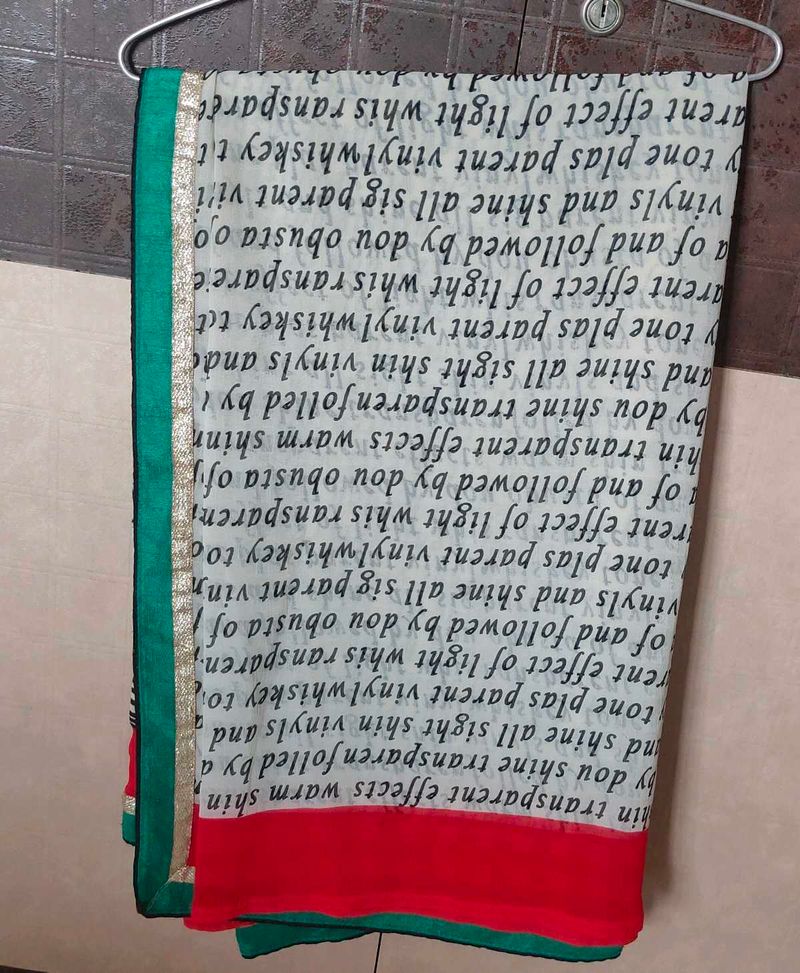 hin transparent effects warm shin
by dou shine transparenfolled by a
and shine all sight shin vinyls and
tone plas parent vinylwhiskey to
rent effect of light whis ransparen
of and followed by dou obusta of
vinyls and shine all sig parent vin
tone plas parent vinylwhiskey too
rent effect of light whis ransparen
a of and followed by dou obusta of
hin transparent effects warm shin
by dou shine transparenfolled by
and shine all sight shin vinyls and
y tone plas parent vinylwhiskey to
arent effect of light whis ranspare
a of and followed by dou obusta of
vinyls and shine all sig parent vi
y tone plas parent vinylwhiskey to
arent effect of light whis ranspare
a of and followed by dou obusta